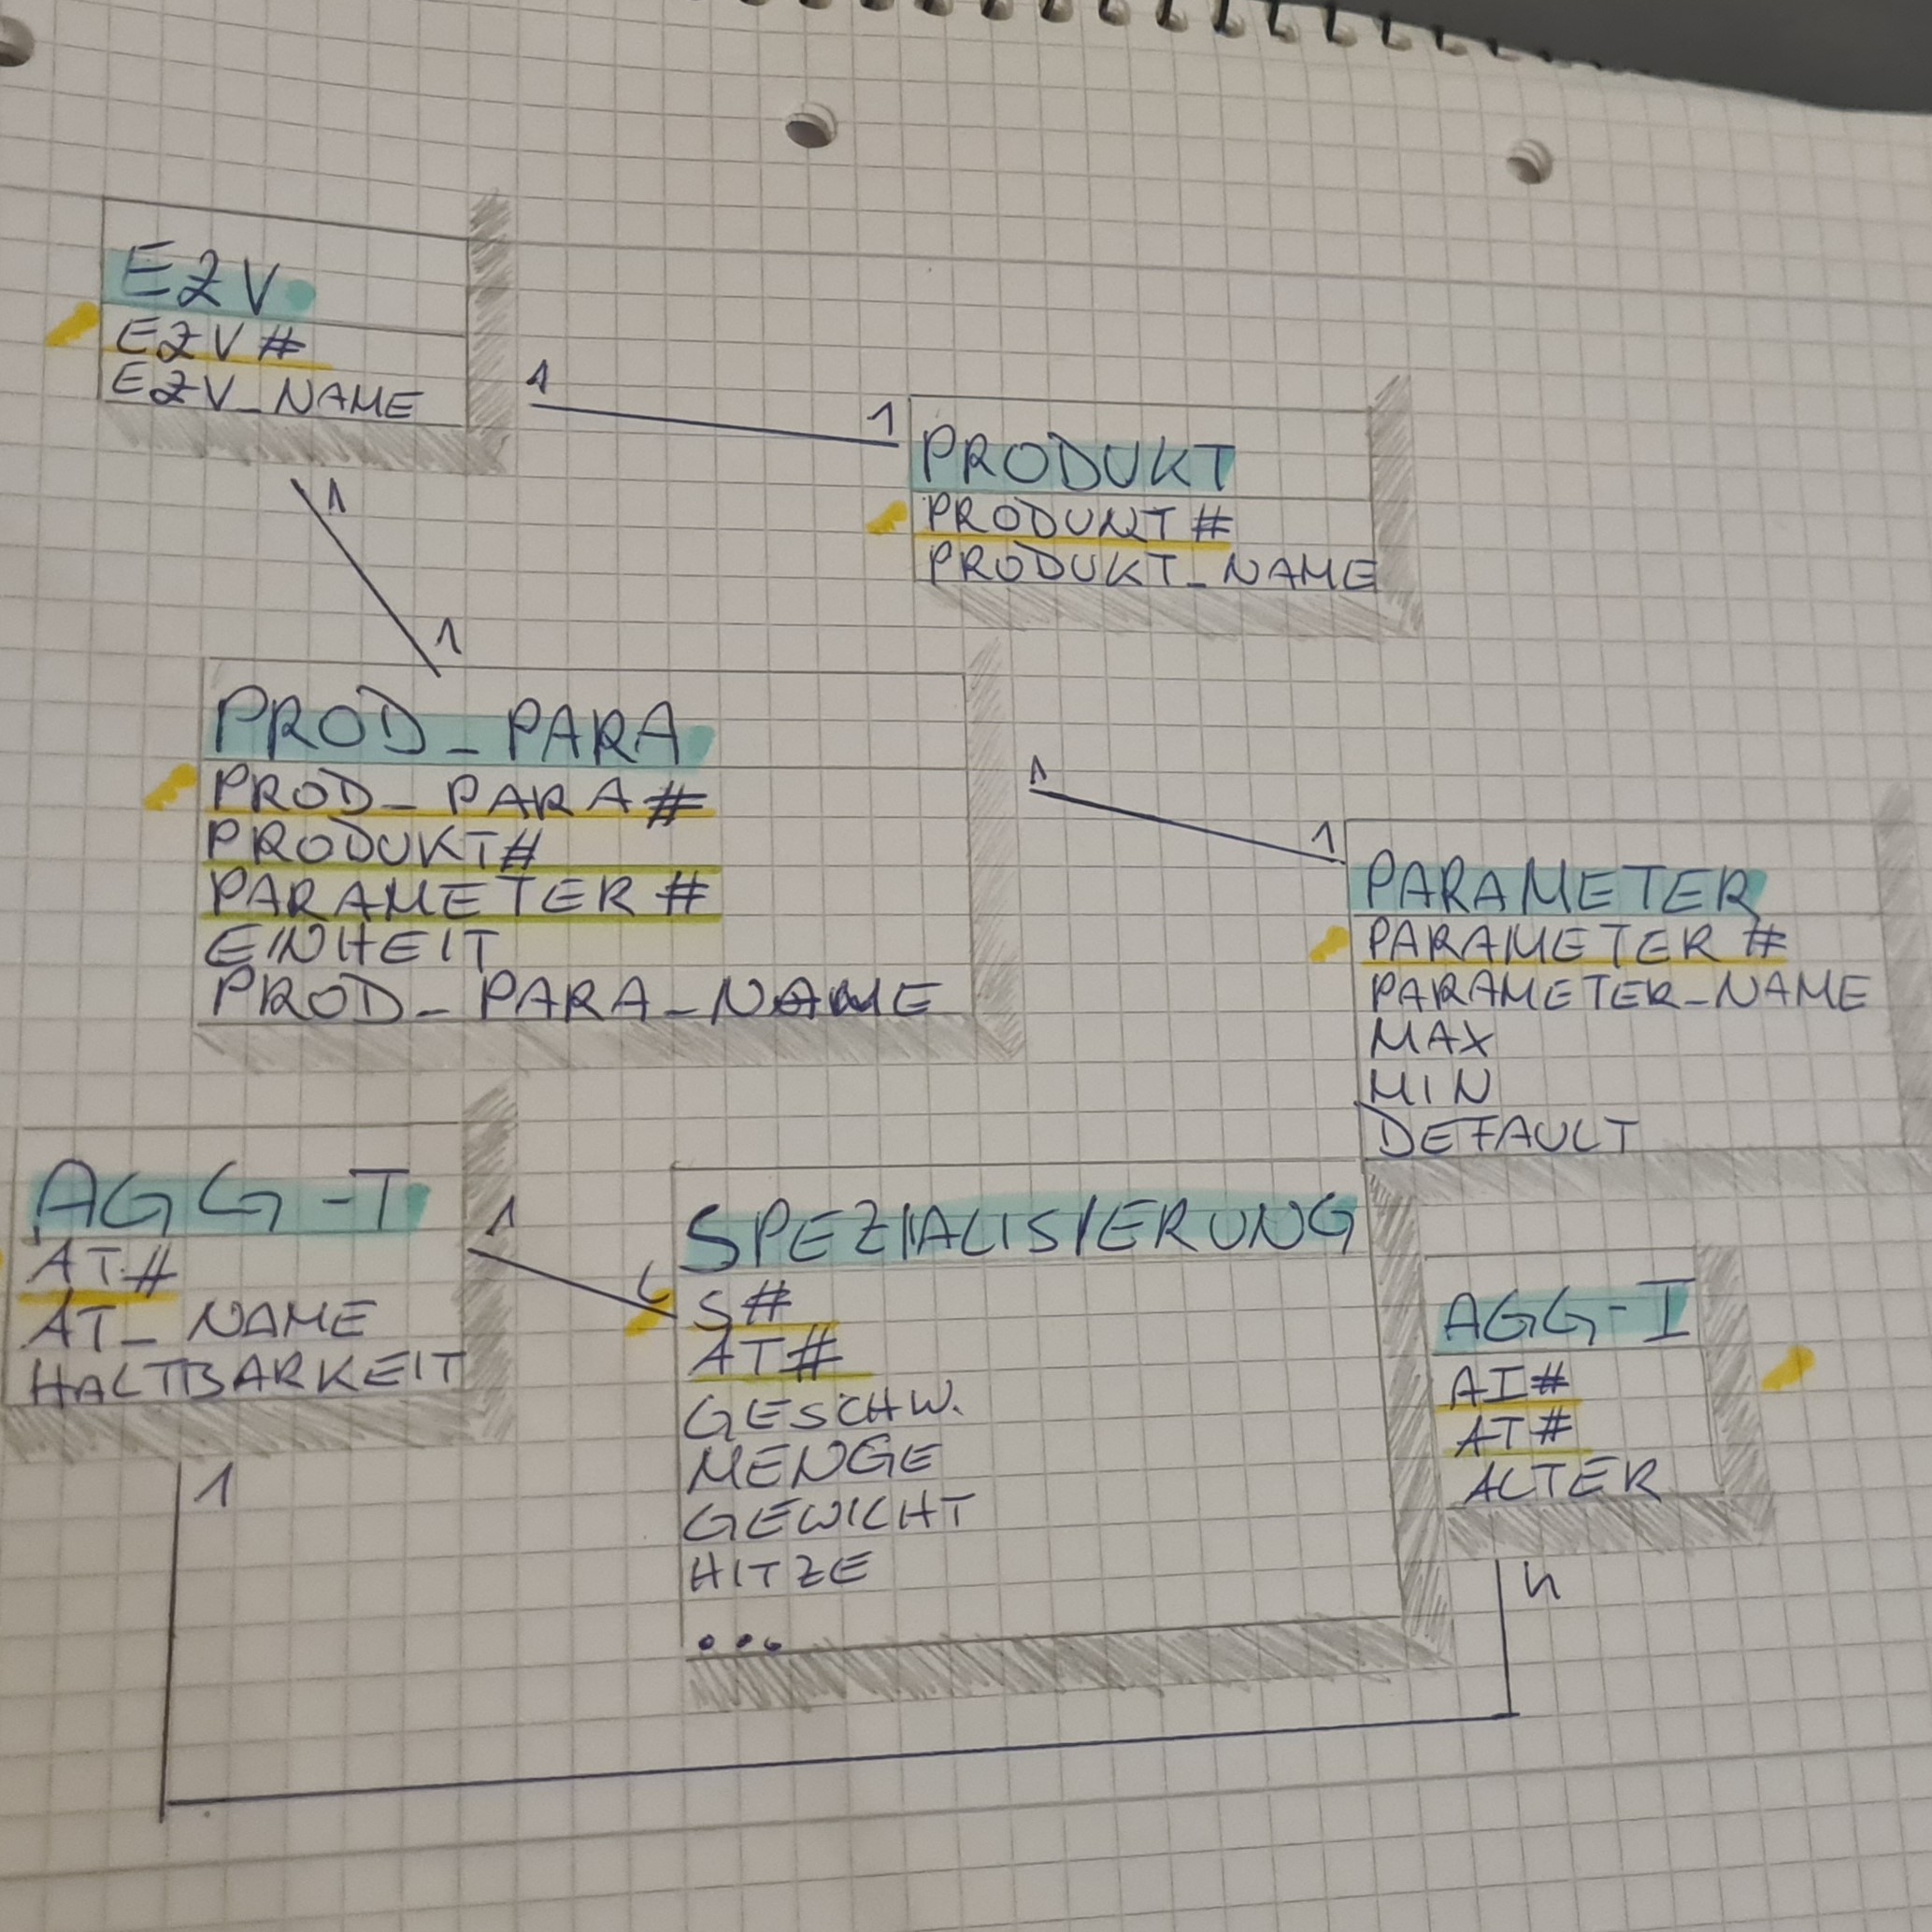 EZV
EZV#
EZV_NAME
1
1
PRODUKT
PRODUKT#
PRODUKT_NAME
1
1
PROD_PARA
PROD_PARA#
PRODUKT#
PARAMETER#
EINHEIT
PROD_PARA_NAME
1
1
PARAMETER
PARAMETER#
PARAMETER_NAME
MAX
MIN
DEFAULT
AGG-T
AT#
AT_NAME
HALTBARKEIT
1
SPEZIALISIERUNG
S#
AT#
GESCHW.
MENGE
GEWICHT
HITZE
...
AGG-I
AI#
AT#
ALTER
1
n